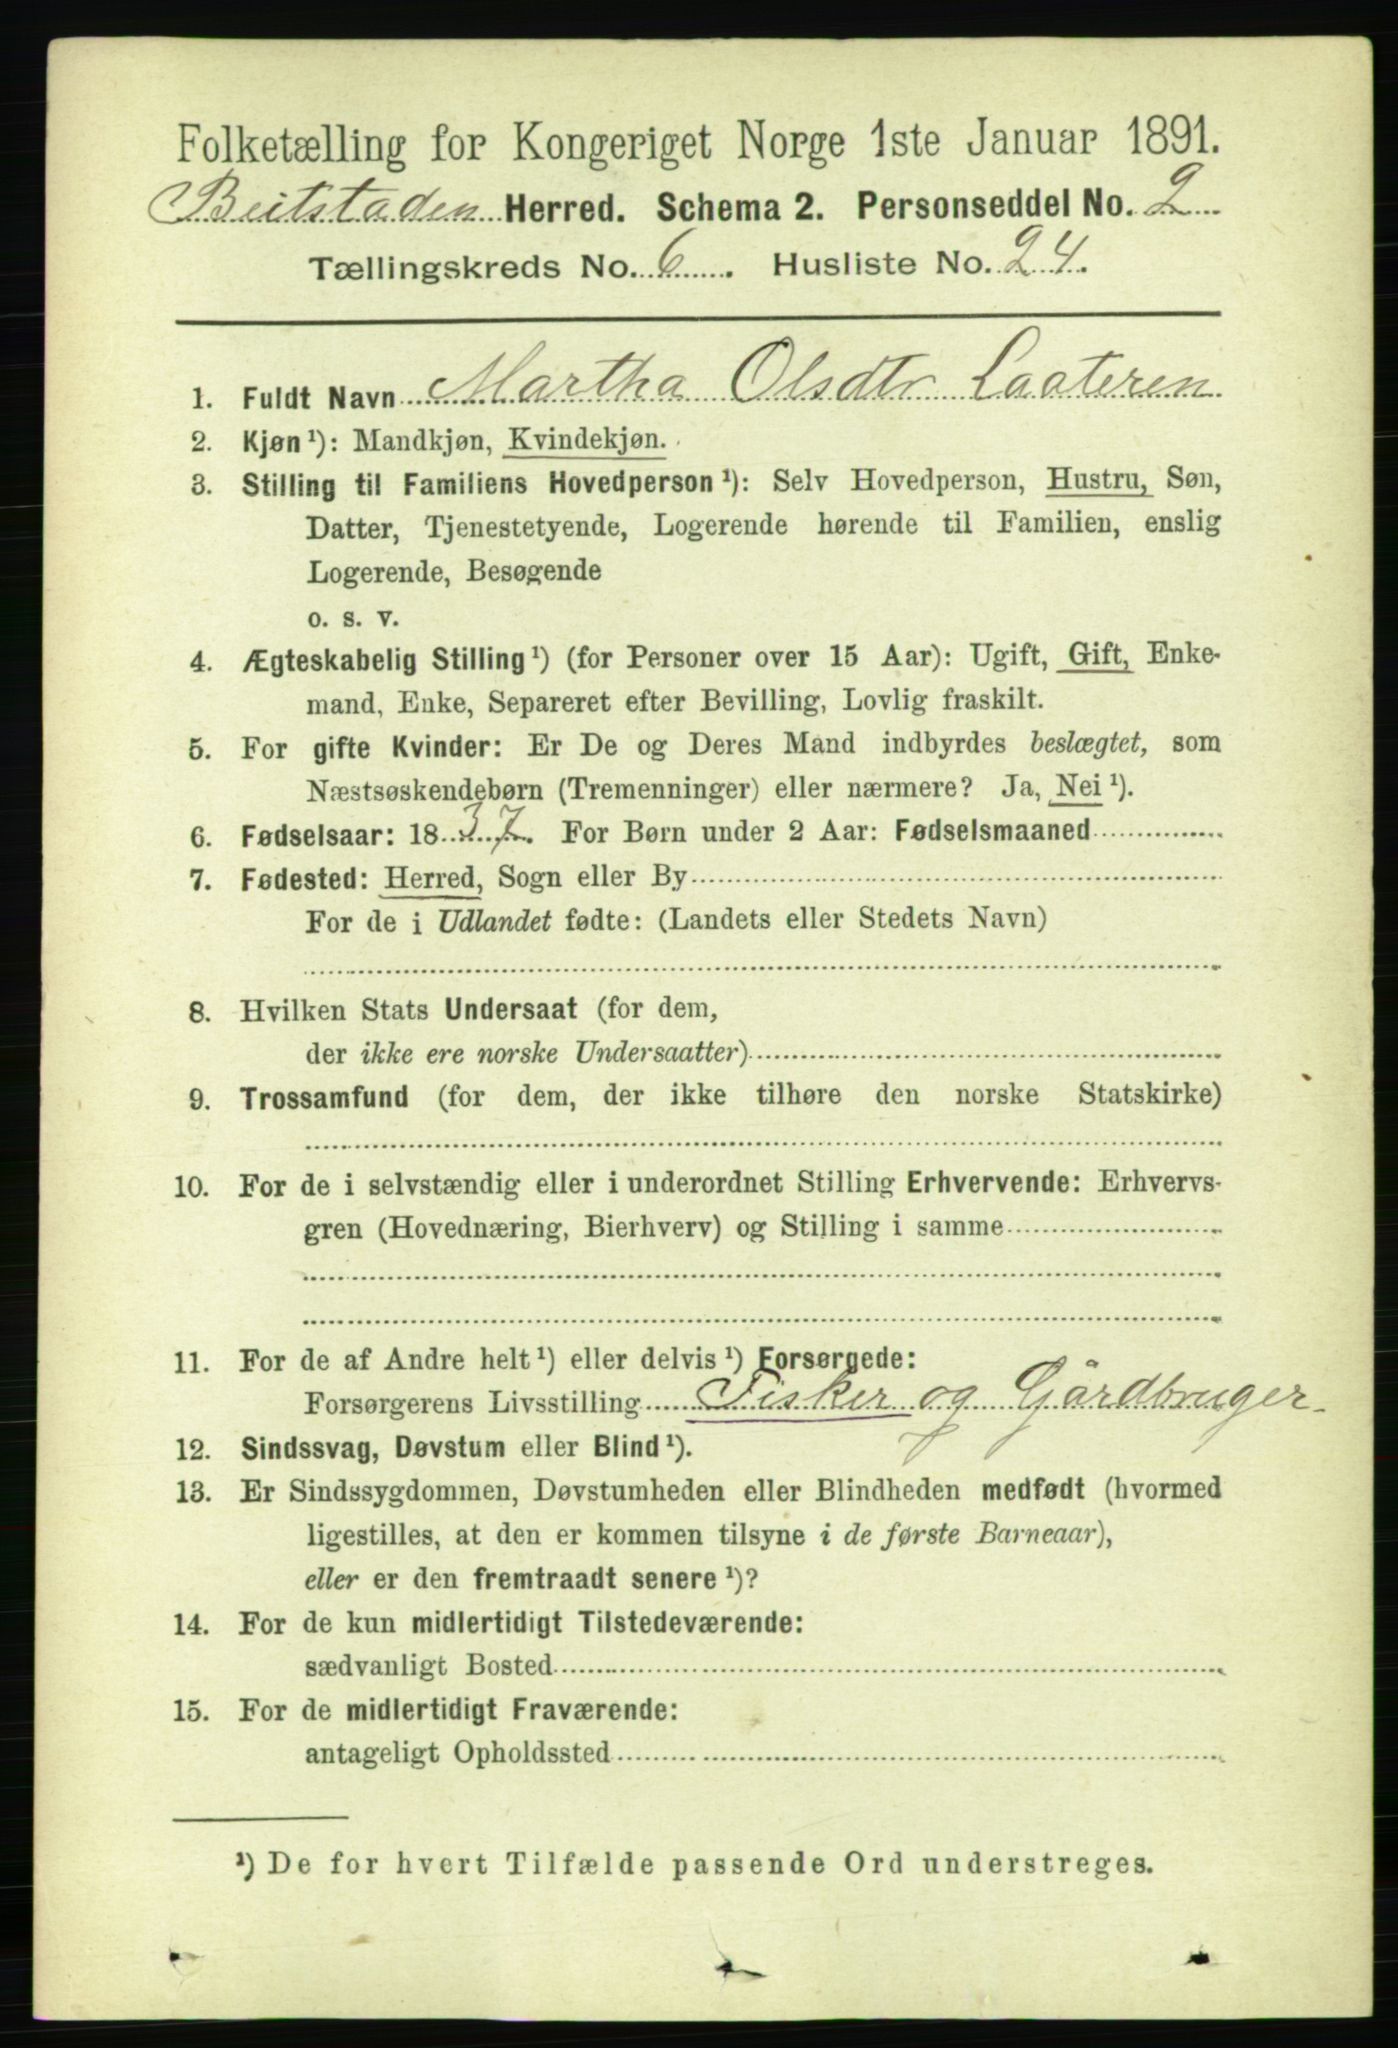 Folketælling for Kongeriget Norge 1ste Januar 1891.
Beitstaden Herred. Schema 2. Personseddel No. 2
Tællingskreds No. 6. Husliste No. 24.
1. Fuldt Navn Martha Olsdtr Laateren
2. Kjøn¹): Mandkjøn, Kvindekjøn.
3. Stilling til Familiens Hovedperson¹): Selv Hovedperson, Hustru, Søn,
Datter, Tjenestetyende, Logerende hørende til Familien, enslig
Logerende, Besøgende
o. s. v.
4. Ægteskabelig Stilling¹) (for Personer over 15 Aar): Ugift, Gift, Enke-
mand, Enke, Separeret efter Bevilling, Lovlig fraskilt.
5. For gifte Kvinder: Er De og Deres Mand indbyrdes beslægtet, som
Næstsøskendebørn (Tremenninger) eller nærmere? Ja, Nei¹).
6. Fødselsaar: 1837. For Børn under 2 Aar: Fødselsmaaned
7. Fødested: Herred, Sogn eller By
For de i Udlandet fødte: (Landets eller Stedets Navn)
8. Hvilken Stats Undersaat (for dem,
der ikke ere norske Undersaatter)
9. Trossamfund (for dem, der ikke tilhøre den norske Statskirke)
10. For de i selvstændig eller i underordnet Stilling Erhvervende: Erhvervs-
gren (Hovednæring, Bierhverv) og Stilling i samme
11. For de af Andre helt¹) eller delvis¹) Forsørgede:
Forsørgerens Livsstilling Fisker og Gårdbruger
12. Sindssvag, Døvstum eller Blind¹).
13. Er Sindssygdommen, Døvstumheden eller Blindheden medfødt (hvormed
ligestilles, at den er kommen tilsyne i de første Barneaar),
eller er den fremtraadt senere¹)?
14. For de kun midlertidigt Tilstedeværende:
sædvanligt Bosted
15. For de midlertidigt Fraværende:
antageligt Opholdssted
¹) De for hvert Tilfælde passende Ord understreges.